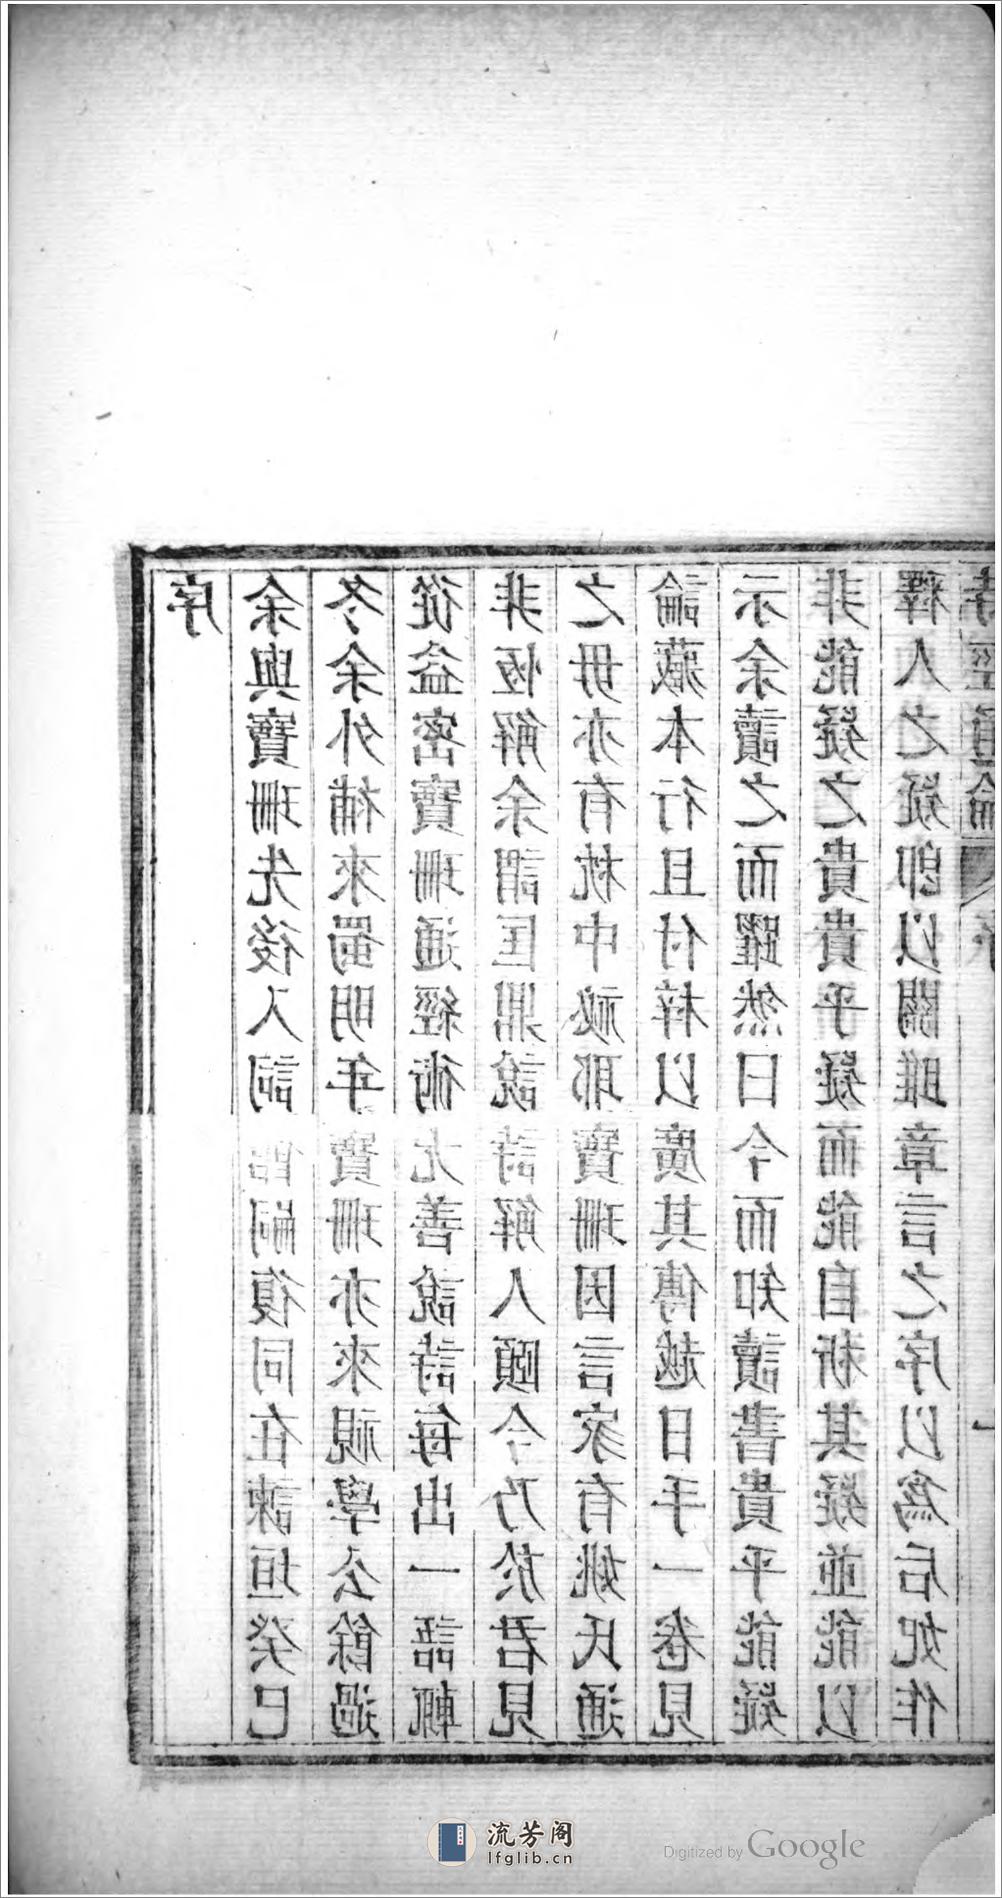 序
余與寶珊先後入詞館嗣復同在諫垣癸巳
冬余外補來蜀明年寶珊亦來視學公餘過
從益密寶珊通經術尤善說詩每出一語輒
非恆解余謂匡鼎說詩解人頤今乃於君見
之毋亦有枕中祕耶寶珊因言家有姚氏通
論藏本行且付梓以廣其傳越日手一卷見
示余讀之而躍然曰今而知讀書貴乎能疑
非能疑之貴貴乎疑而能自析其疑並能以
釋人之疑卽以關雎章言之序以爲后妃作
詩經通論 序 一
流芳阁
lfglib.cn
Digitized by Google